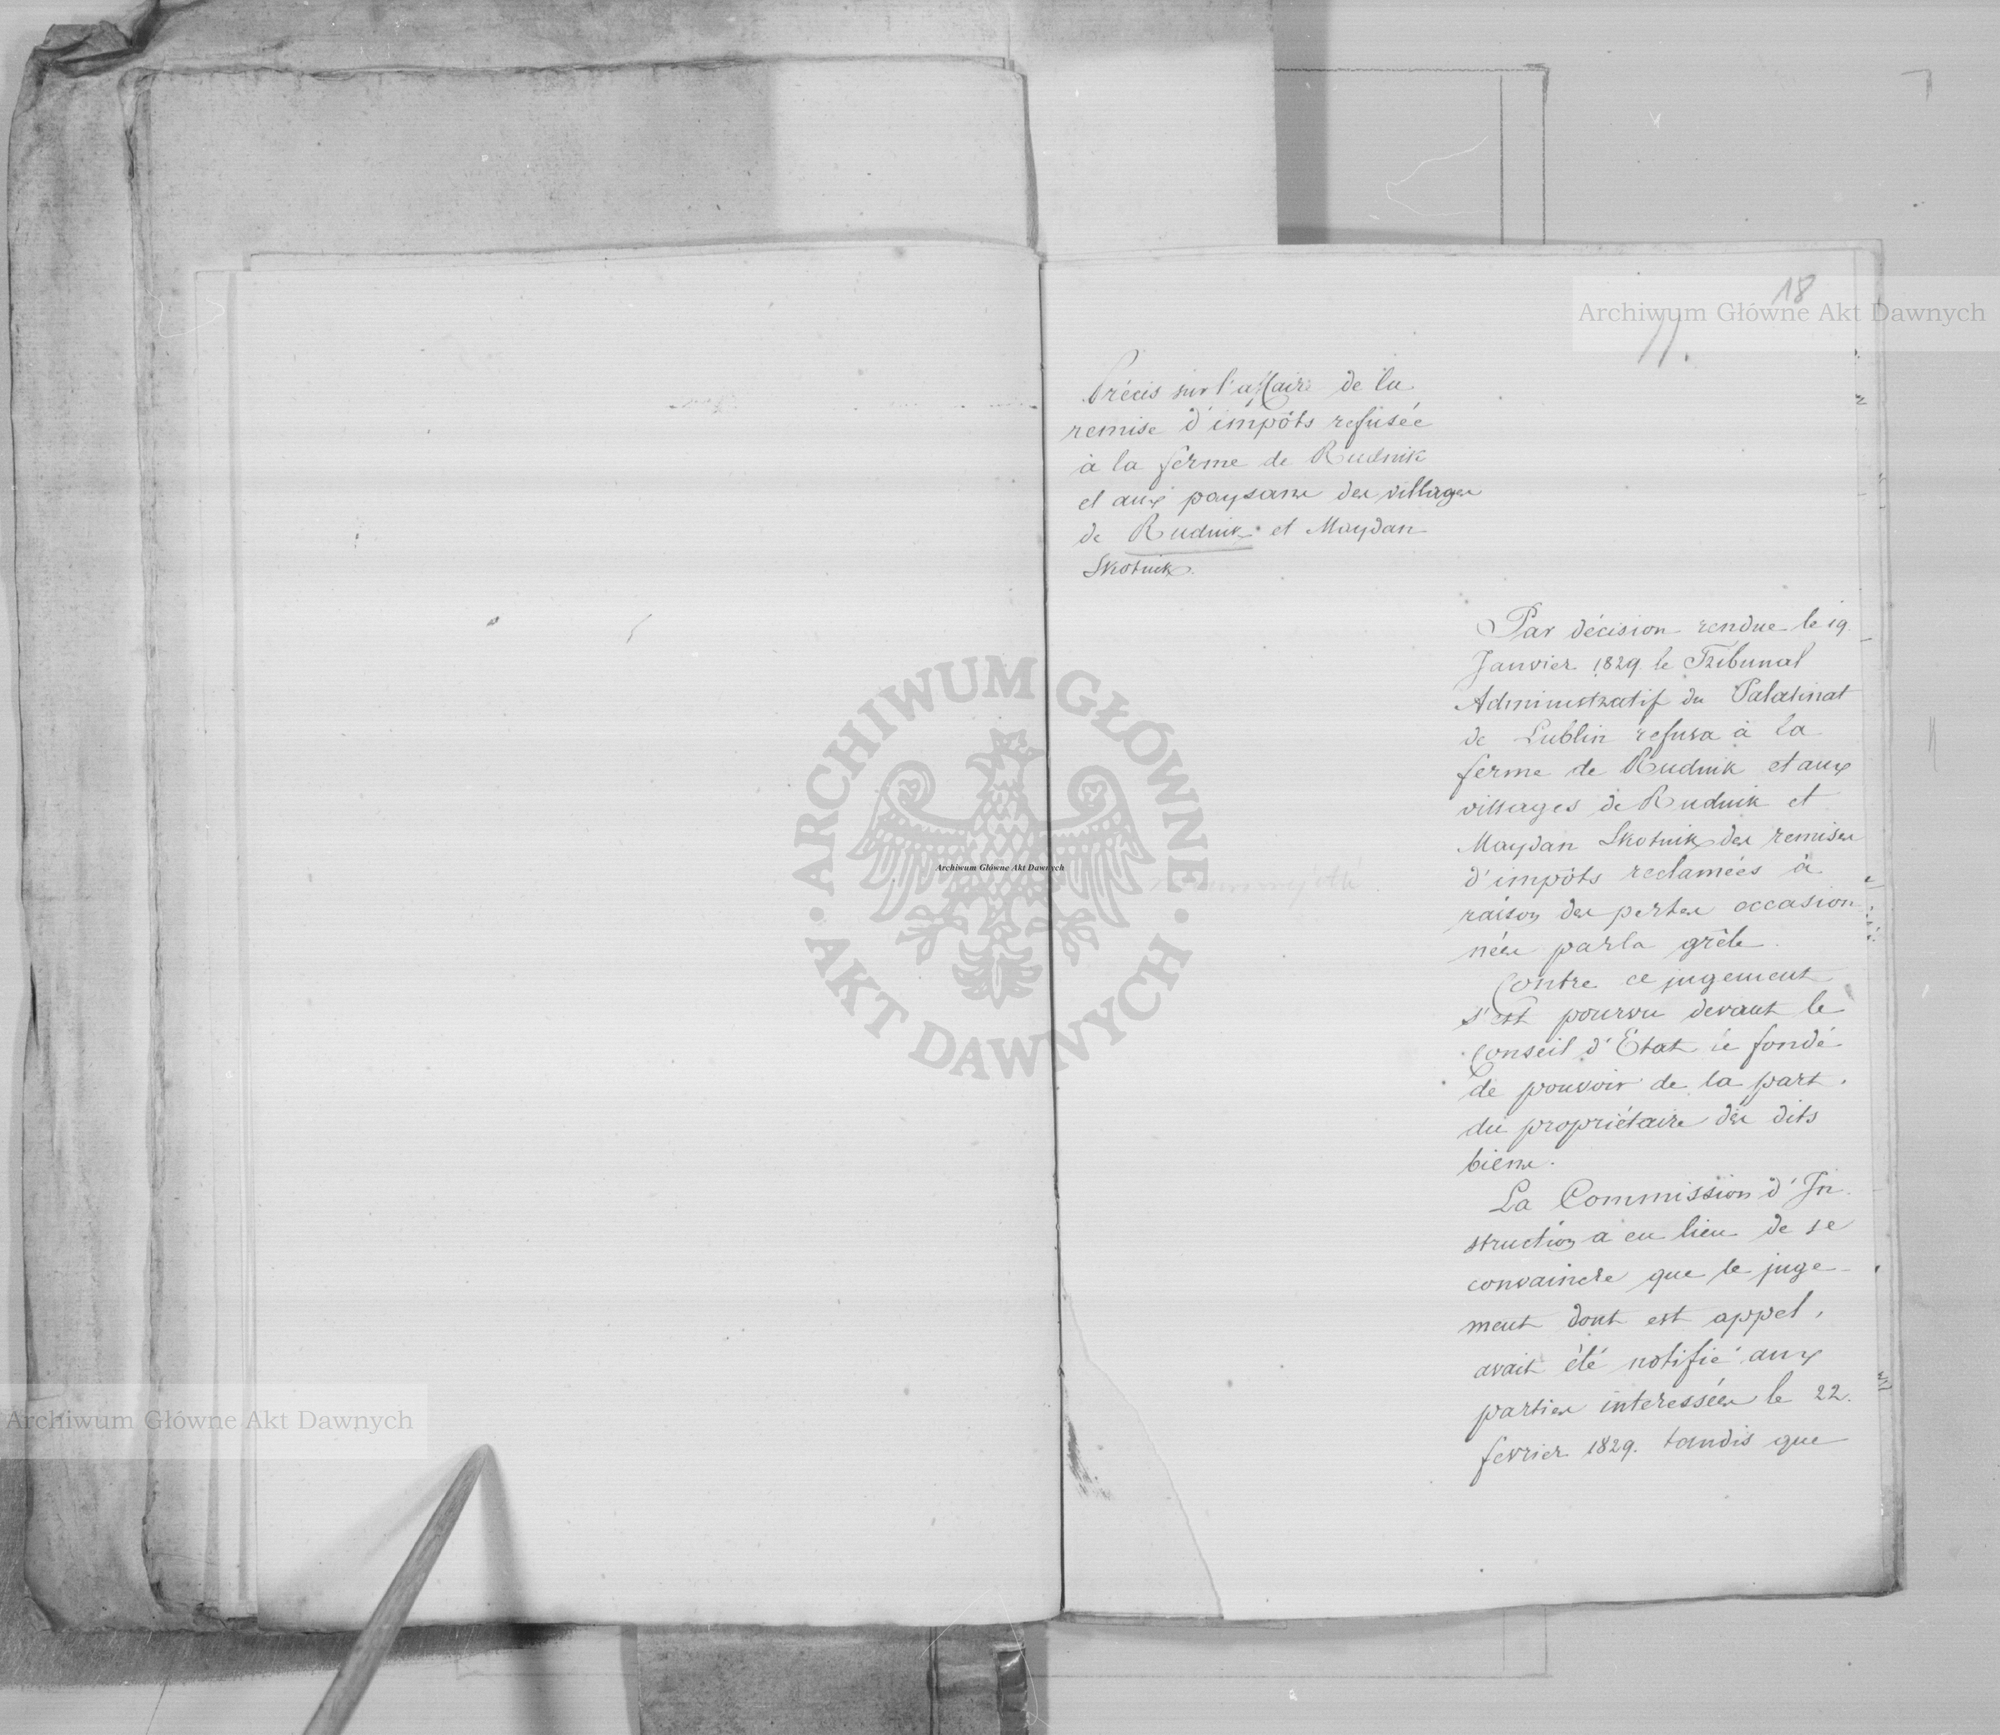 18
11.
Précis sur l'affaire de la
remise d'impôts refusée
à la ferme de Rudnik
et aux paysans des villages
de Rudnik et Maydan
Skotnik.
Par décision rendue le 19.
Janvier 1829. le Tribunal
Administratif du Palatinat
de Lublin refusa à la
ferme de Rudnik et aux
villages de Rudnik et
Maydan Skotnik des remises
d'impôts reclamées à
raison des pertes occasion
nées par la grêle.
Contre ce jugement
s'est pourvu devant le
Conseil d'Etat le fondé
de pouvoir de la part
du propriétaire des dits
biens.
La Commission d'In
struction a eu lieu de se
convaincre que le juge-
ment dont est appel,
avait été notifié aux
parties interessées le 22.
fevrier 1829. tandis que
Archiwum Główne Akt Dawnych
Archiwum Główne Akt Dawnych
Archiwum Główne Akt Dawnych
ARCHIWUM GŁÓWNE
AKT DAWNYCH